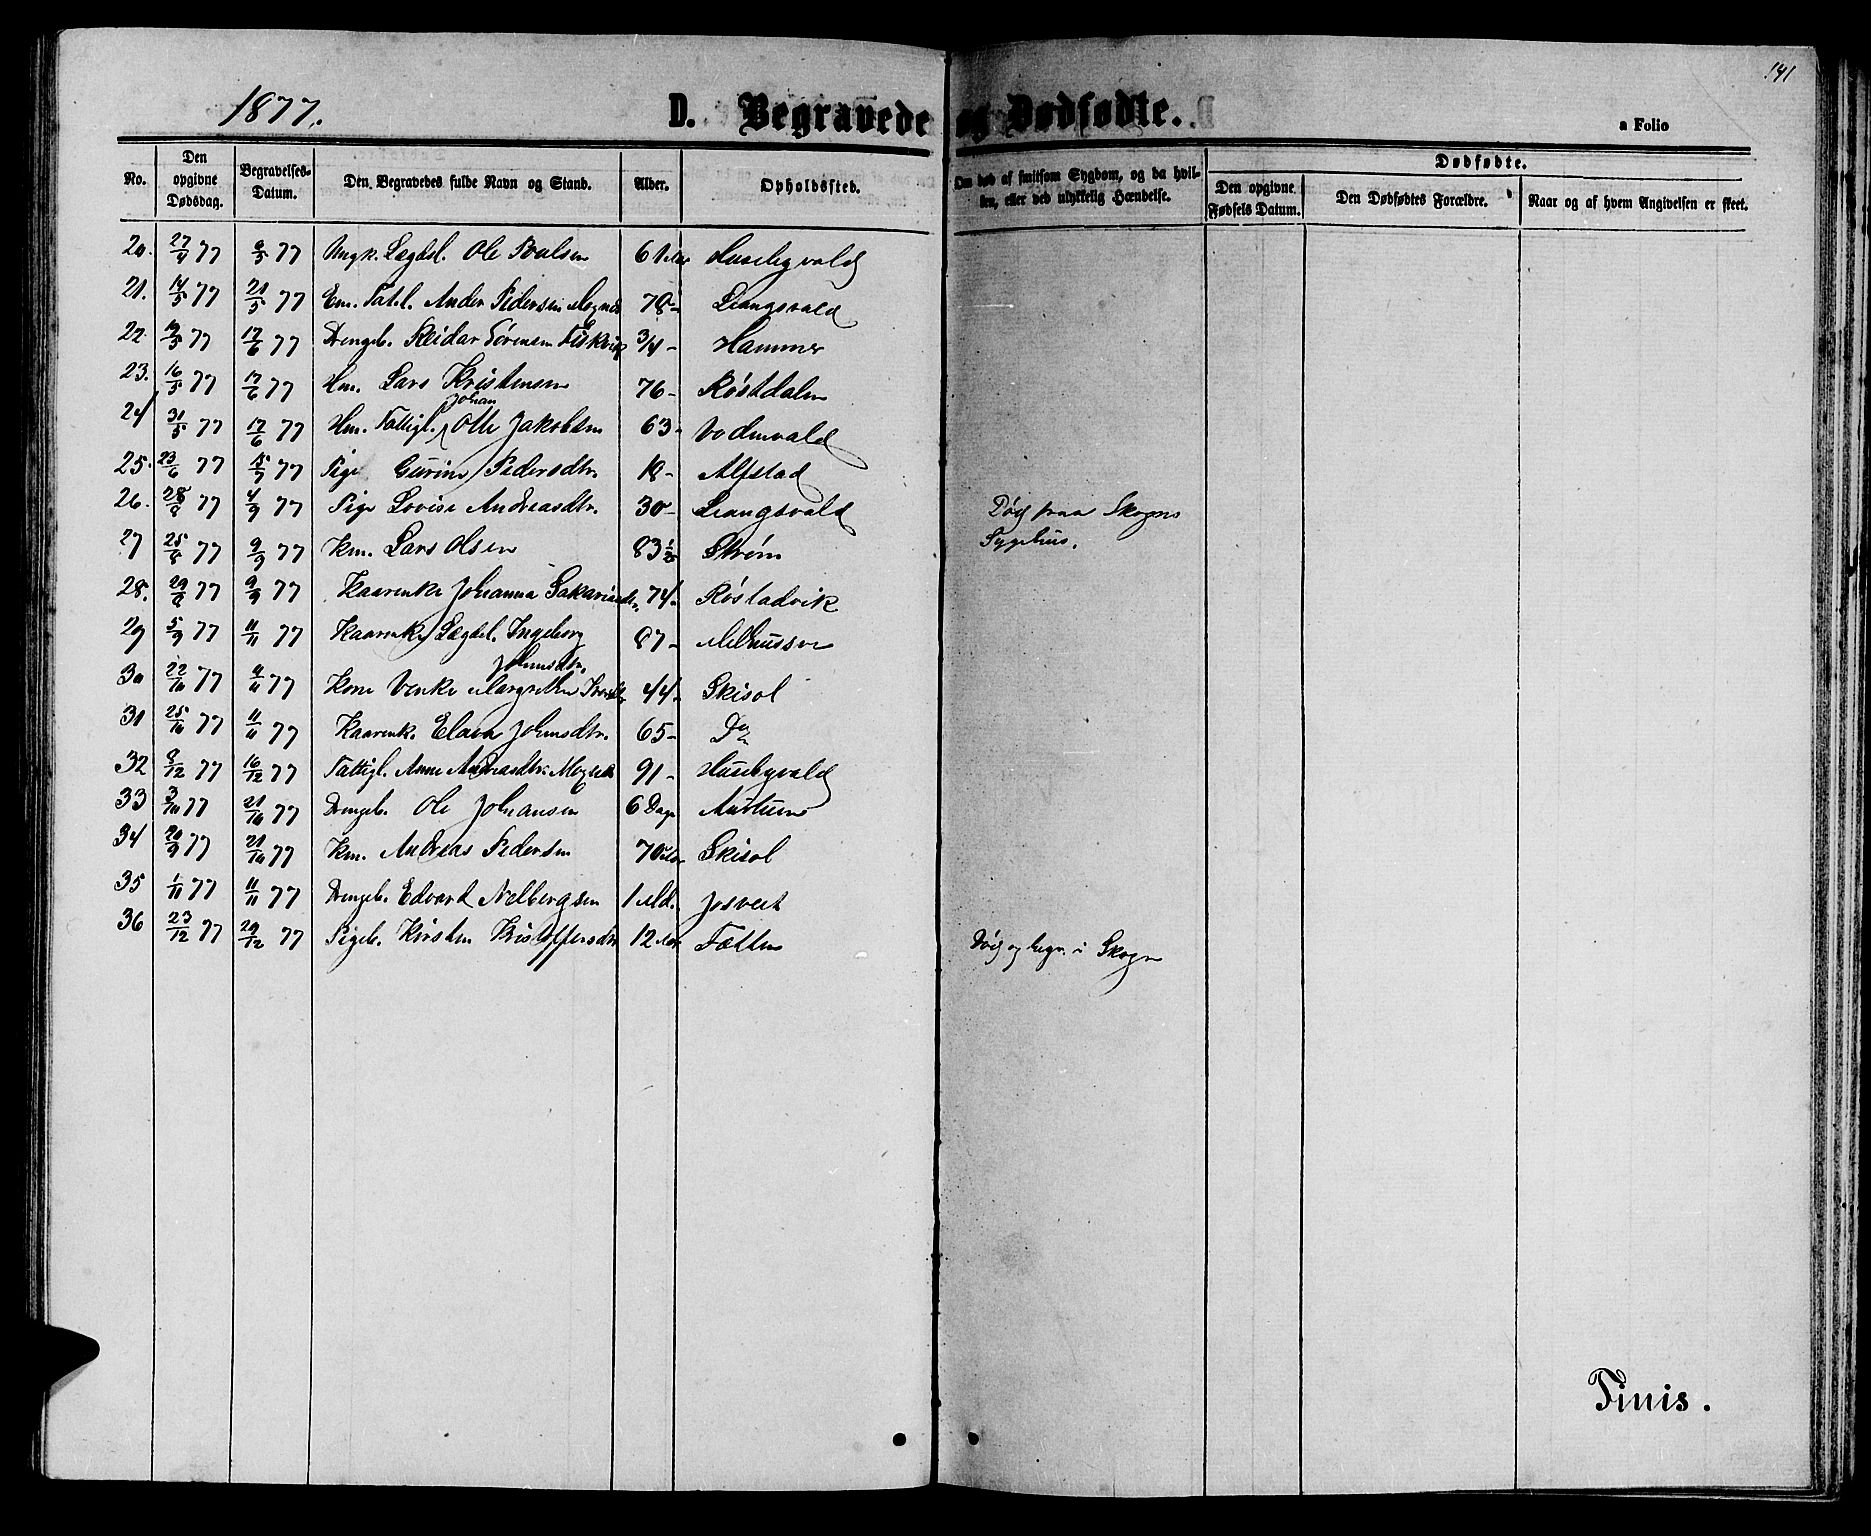 141
1877.
D. Begravede og Dødfødte.
a Folio
No.
Den opgivne Dødsdag.
Begravelses-Datum.
Den Begravedes fulde Navn og Stand.
Alder.
Opholdssted.
Om død af smitsom Sygdom, og da hvilken, eller ved ulykkelig Hændelse.
Dødfødte.
Den opgivne Fødsels Datum.
Den Dødfødtes Forældre.
Naar og af hvem Angivelsen er skeet.
20. 27/4 77 6/5 77 Ungk. Lægdsl. Ole 61 Aar Husebyvald
21. 14/5 77 21/5 77 Em. Anders Pedersen 78- Liangsvald
22. 77 17/6 77 Drengeb. Reidar Sørensen 3/4- Hammer
23. 16/5 77 17/6 77 Hm. Lars Kristensen 76- Røstdalen
Johan
24 31/5 77 17/6 77 Hm. Fattigl. Otte Jakobsen 63- Vodenvald
25. 23/6 77 77 Pige Gurine Pedersdtr. 18- Alfstad
26. 28/8 77 4/9 77 Pige Lovise Andreasdtr. 30- Liangsvald Død paa Skogns
27 25/8 77 9/9 77 Km. Lars Olsen 83 Strøm Sygehus.
28. 29/8 77 9/9 77 Kaarenke Johanna 74- Røstadvik
29 5/9 77 11/11 77 Kaarenke Lægdsl. Ingeborg 87-
Johnsdtr.
30 22/10 77 77 Kone Venke Margrethe 44- Skisol
31 25/10 77 11/11 77 Kaarenk. Johnsdtr. 65- Do
32 8/12 77 16/12 77 Fattigl. Anne Andreasdtr. 91- Husebyvald
33 3/10 77 21/10 77 Drengeb. Ole Johansen 6 Dage
34 20/9 77 21/10 77 Km. Andreas Pedersen 70 Aar Skisol
35 1/11 77 11/11 77 Drengeb. Edvard 1 Md.
36 23/12 77 29/12 77 Pigeb. Kirsten Kristoffersdtr 12 Aar Fætten Død og begr. i Skogn
Finis.